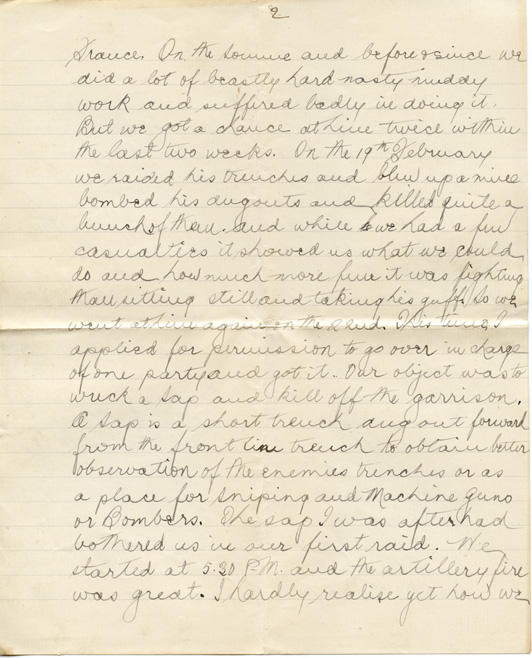 2
France. On the Somme and before & since we
did a lot of beastly hard nasty muddy
work and suffered badly in doing it.
But we got a chance at him twice within
the last two weeks. On the 19th February
we raided his trenches and blew up a mine
bombed his dugouts and killed quite a
bunch of them. and while we had a few
casualties it showed us what we could
do and how much more fun it was fighting
than sitting still and taking his guff. So we
went at him again on the 22nd. This time I
applied for permission to go over in charge
of one party and got it. Our object was to
wreck a sap and kill off the garrison.
A sap is a short trench dug out forward
from the front line trench to obtain better
observation of the enemies trenches or as
a place for sniping and Machine guns
or Bombers. The sap I was after had
bothered us in our first raid. We
started at 5.30 P.M. and the artillery fire
was great. I hardly realise yet how we